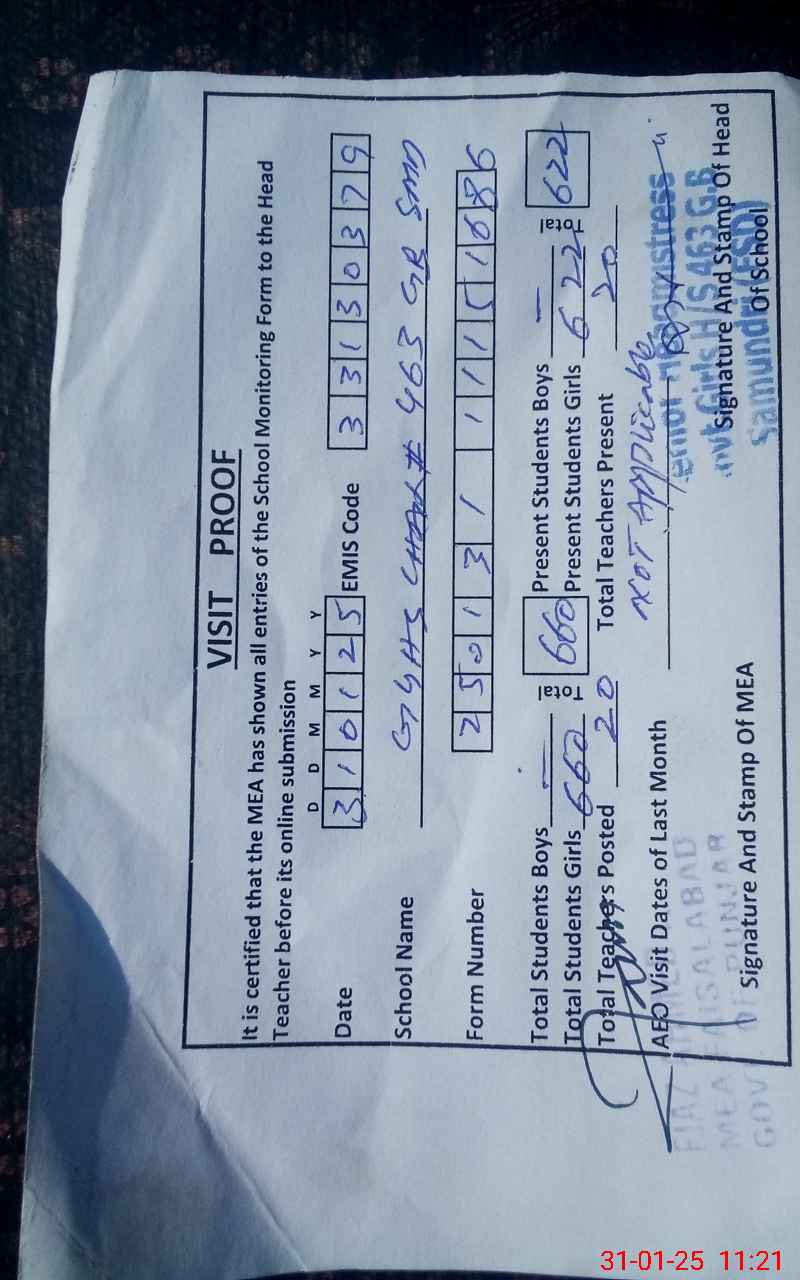 VISIT PROOF
It is certified that the MEA has shown all entries of the School Monitoring Form to the Head
Teacher before its online submission
D D M M Y Y
Date 3 1 0 1 2 5 EMIS Code 3 3 1 3 0 3 7 9
School Name GGHS CHAK# 463 GB SMD
Form Number 2 5 0 1 3 1 1 1 1 5 1 6 8 6
Total Students Boys — Total 660 Present Students Boys — Total 622
Total Students Girls 660 Present Students Girls 622
Total Teachers Posted 20 Total Teachers Present 20
AEO Visit Dates of Last Month NOT Applicable
Signature And Stamp Of MEA
Signature And Stamp Of Head
Of School
MEA FAISALABAD
GOVT. OF PUNJAB
Headmistress
Girls H/S 463 G.B
Samundri (FSD)
31-01-25 11:21